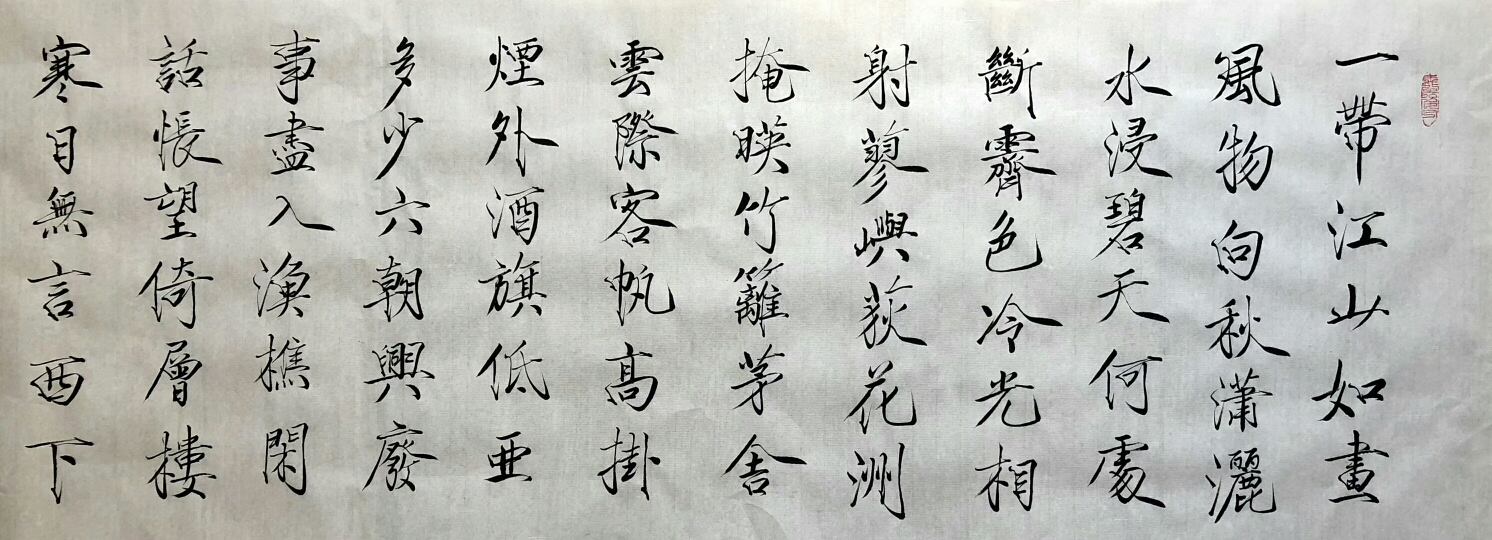 一帶江山如畫
風物向秋瀟灑
水浸碧天何處
斷霽色冷光相
射蓼嶼荻花洲
掩映竹籬茅舍
雲際客帆高掛
煙外酒旗低亞
多少六朝興廢
事盡入漁樵閑
話悵望倚層樓
寒日無言西下